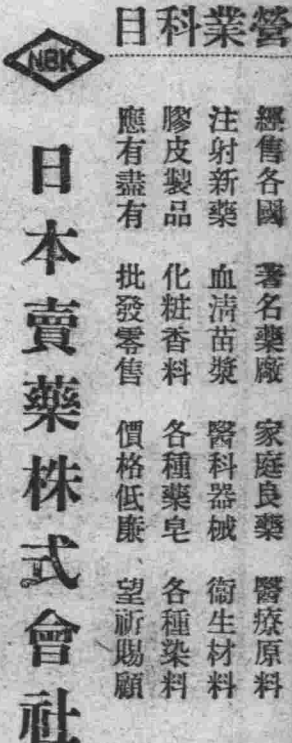 營業科目
經售各國 著名藥廠 家庭良藥 醫療原料
注射新藥 血清苗漿 醫科器械 衞生材料
膠皮製品 化粧香料 各種藥皂 各種染料
應有盡有 批發零售 價格低廉 望祈賜顧
NBK
日本賣藥株式會社